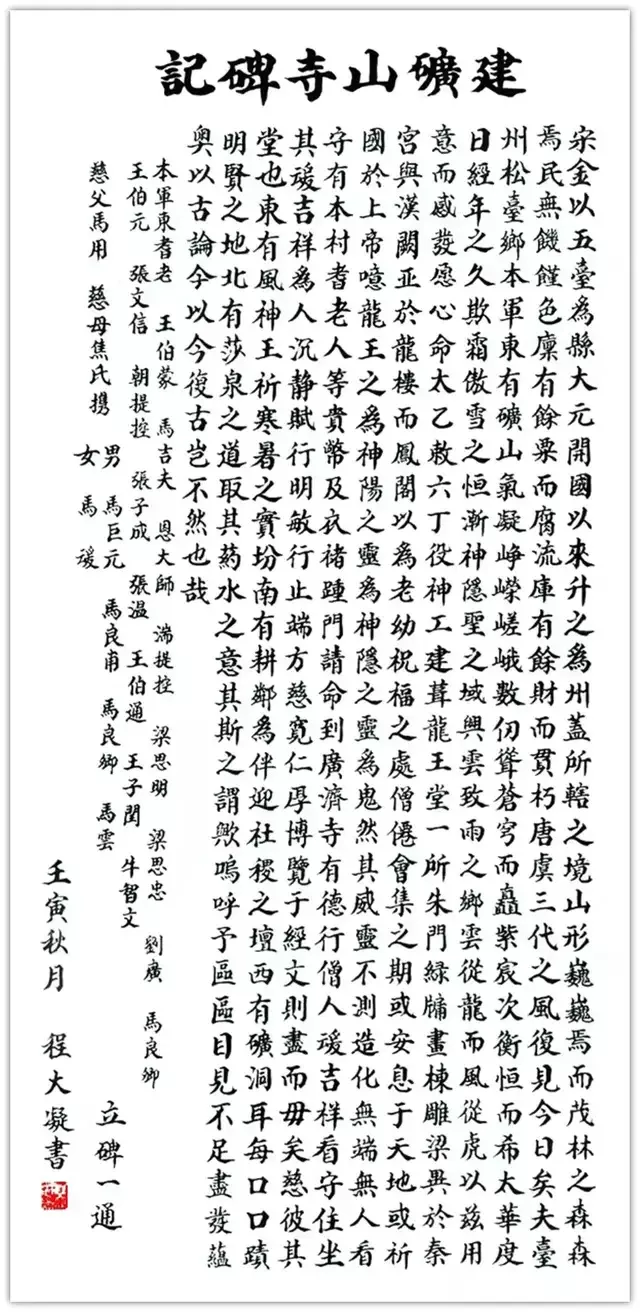 建礦山寺碑記
宋金以五臺為縣大元開國以來升之為州蓋所轄之境山形巍巍焉而茂林之森森
焉民無饑饉色廩有餘粟而腐流庫有餘財而貫朽唐虞三代之風復見今日矣夫臺
州松臺鄉本軍東有礦山氣凝崢嶸嵯峨數仞聳蒼穹而矗紫宸次衡恒而希太華度
日經年之久欺霜傲雪之恒漸神隱聖之域興雲致雨之鄉雲從龍而風從虎以兹用
意而感發愿心命太乙敕六丁役神工建葺龍王堂一所朱門綠牖畫棟雕梁異於秦
宮與漢闕亚於龍樓而鳳閣以為老幼祝福之處僧僊會集之期或安息于天地或祈
國於上帝噫龍王之為神陽之靈為神隱之靈為鬼然其威靈不測造化無端無人看
守有本村耆老人等賁幣及衣褚踵門請命到廣濟寺有德行僧人瑗吉祥看守住坐
其瑗吉祥為人沉静賦行明敏行止端方慈寬仁厚博覽于經文則盡而毋矣慈彼其
堂也東有風神王祈寒暑之實坋南有耕鄰為伴迎社稷之壇西有礦洞耳每口口蹟
明賢之地北有莎泉之道取其药水之意其斯之謂歟嗚呼予區區目見不足盡發蘊
奥以古論今以今復古岂不然也哉
本軍東耆老 王伯蒙 馬吉夫 恩大師 湍提控 梁思明 梁思忠 劉廣 馬良卿
王伯元 張文信 朝提控 張子成 張温 王伯通 王子閏 牛智文
慈父馬用 慈母焦氏携 男 馬巨元 馬良甫 馬良卿 馬雲
女 馬瑗
立碑一通
壬寅秋月 程大凝書